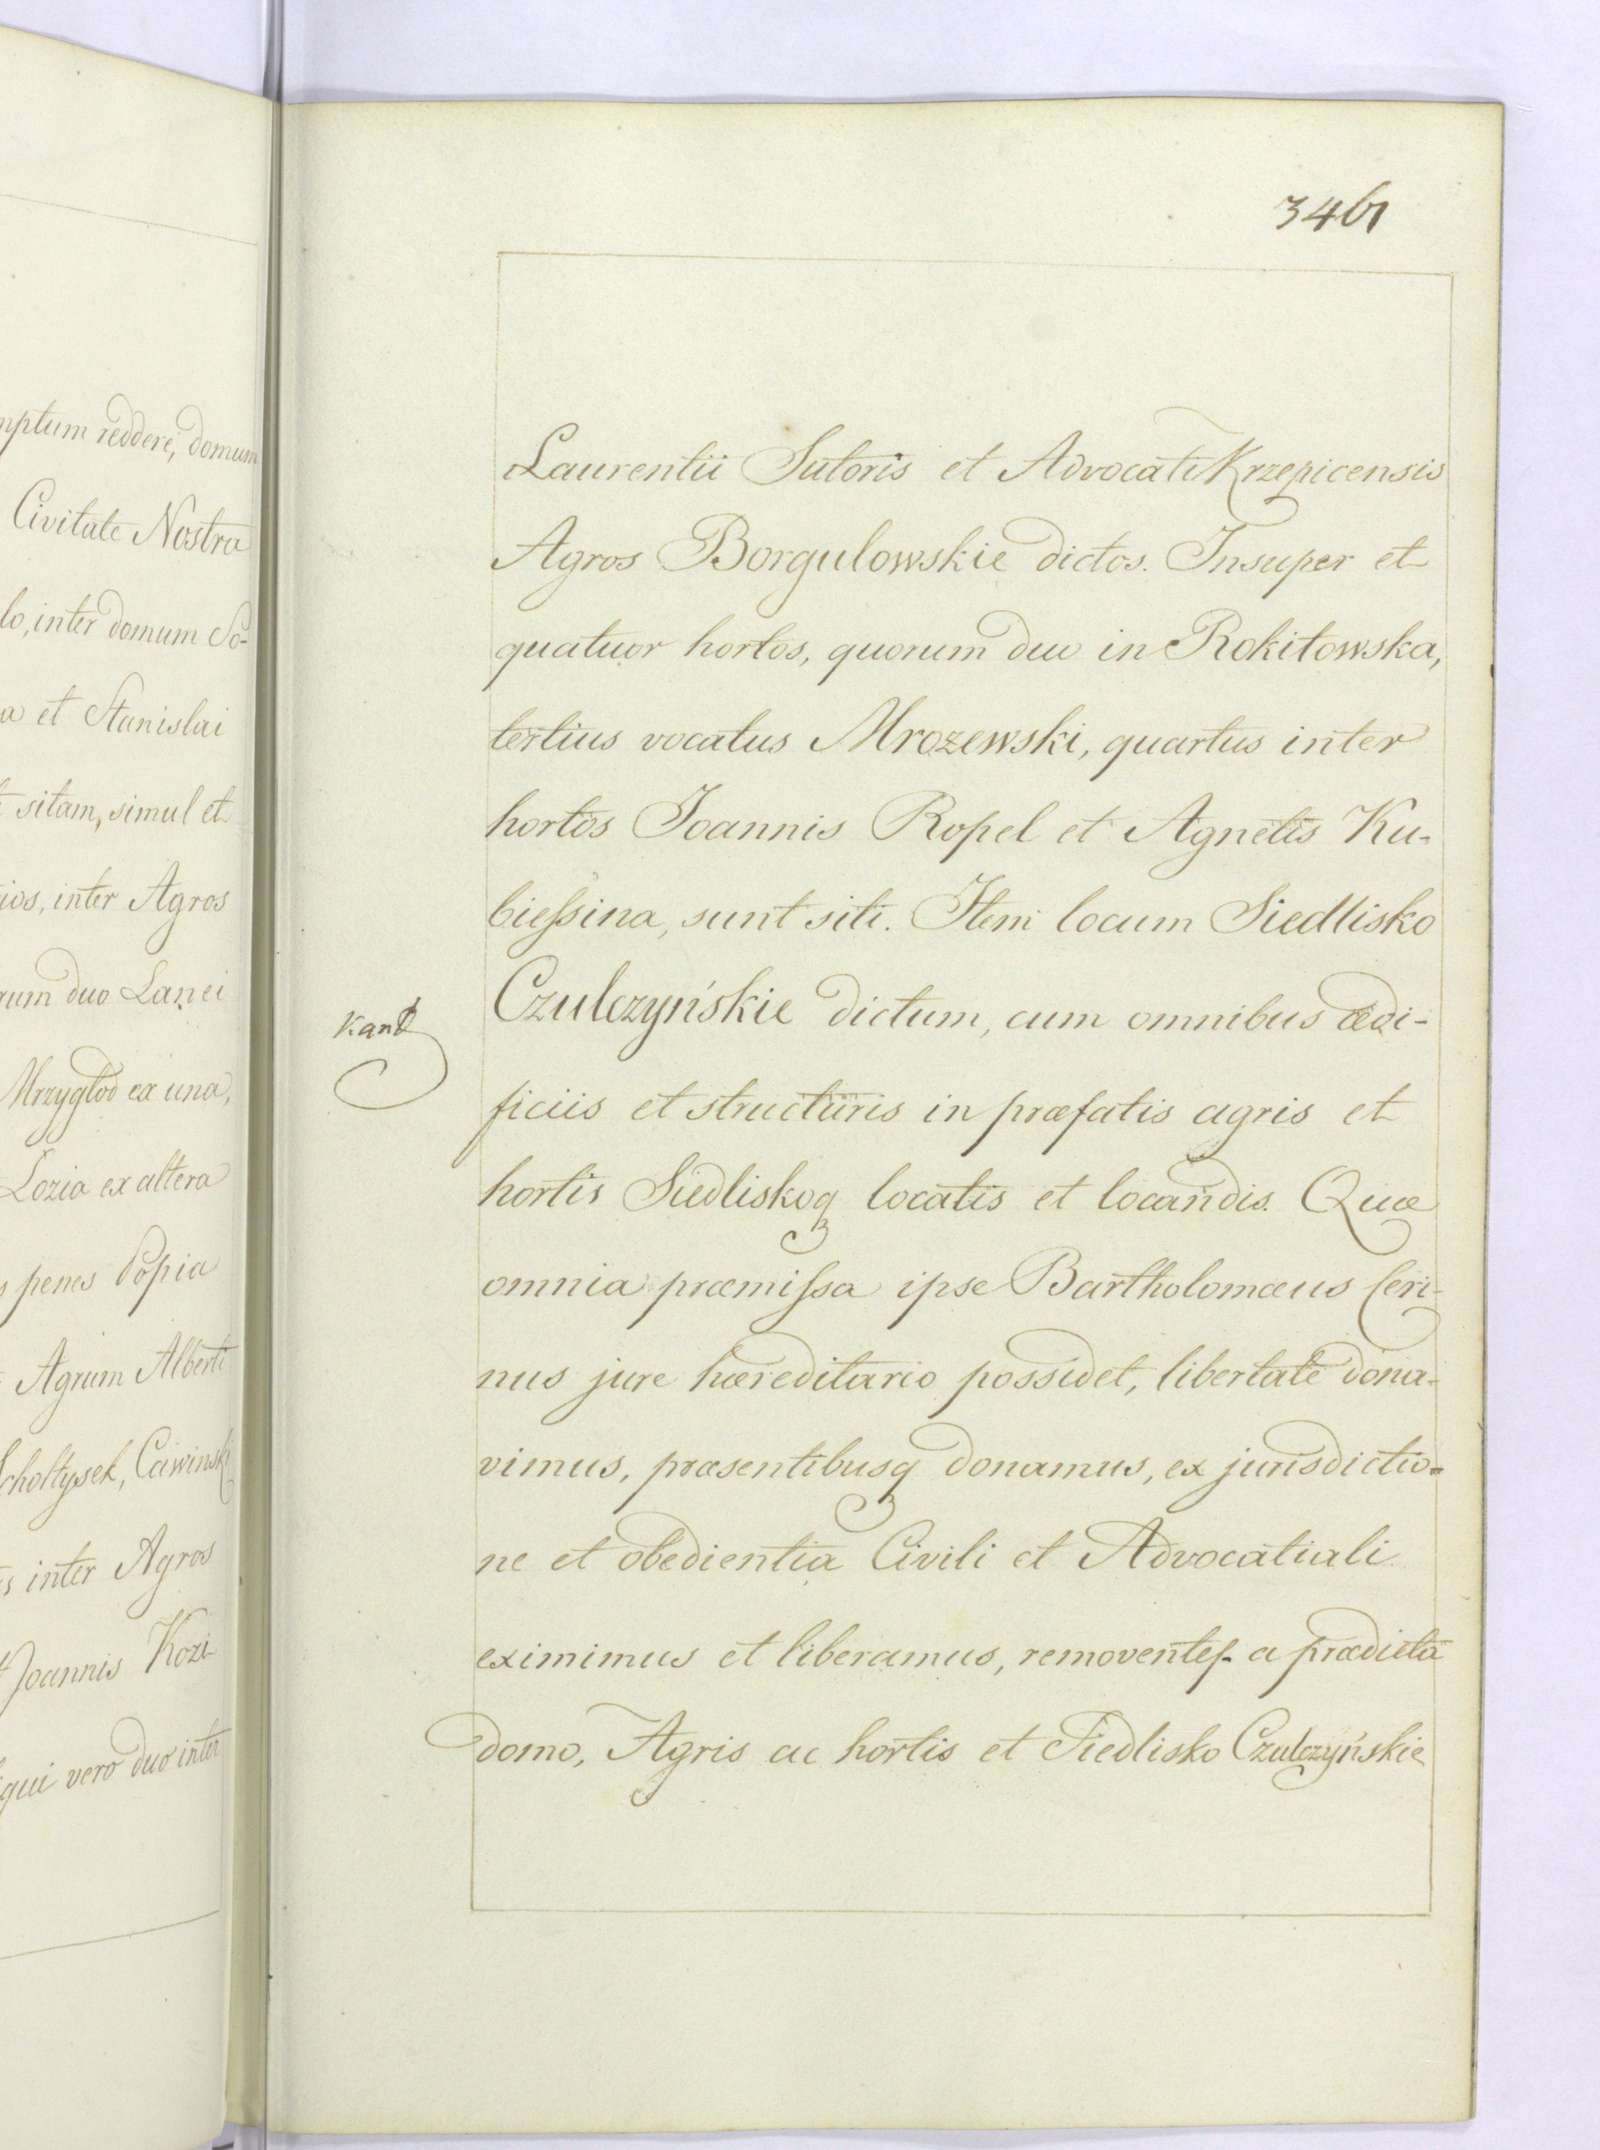 mptum reddere, domum
Civitate Nostra
lo, inter domum So-
a et Stanislai
sitam, simul et
ios, inter Agros
rum duo Lanei
Mrzygłod ex una,
Lozia ex altera
s penes Popia
Agrum Alberti
Scholtysek, Cawinski
s inter Agros
Joannis Kozi-
qui vero duo inter
346
Laurentii Sutoris et Advocati Krzepicensis
Agros Borgulowskie dictos. Insuper et
quatuor hortos, quorum duo in Rokitowska,
tertius vocatus Mrozewski, quartus inter
hortos Joannis Ropel et Agnetis Ku-
bieſsina, sunt siti. Item locum Siedlisko
Czulczyńskie dictum, cum omnibus ædi-
Kand
ficiis et structuris in præfatis agris et
hortis Siedliskoq locatis et locandis. Quæ
omnia præmiſsa ipse Bartholomæus Ceri-
nus jure hæreditario possidet, libertate dona-
vimus, præsentibusq donamus, ex jurisdictio-
ne et obedientia Civili et Advocatiali
eximimus et liberamus, removentes a prædicta
domo, Agris ac hortis et Siedlisko Czulczyńskie